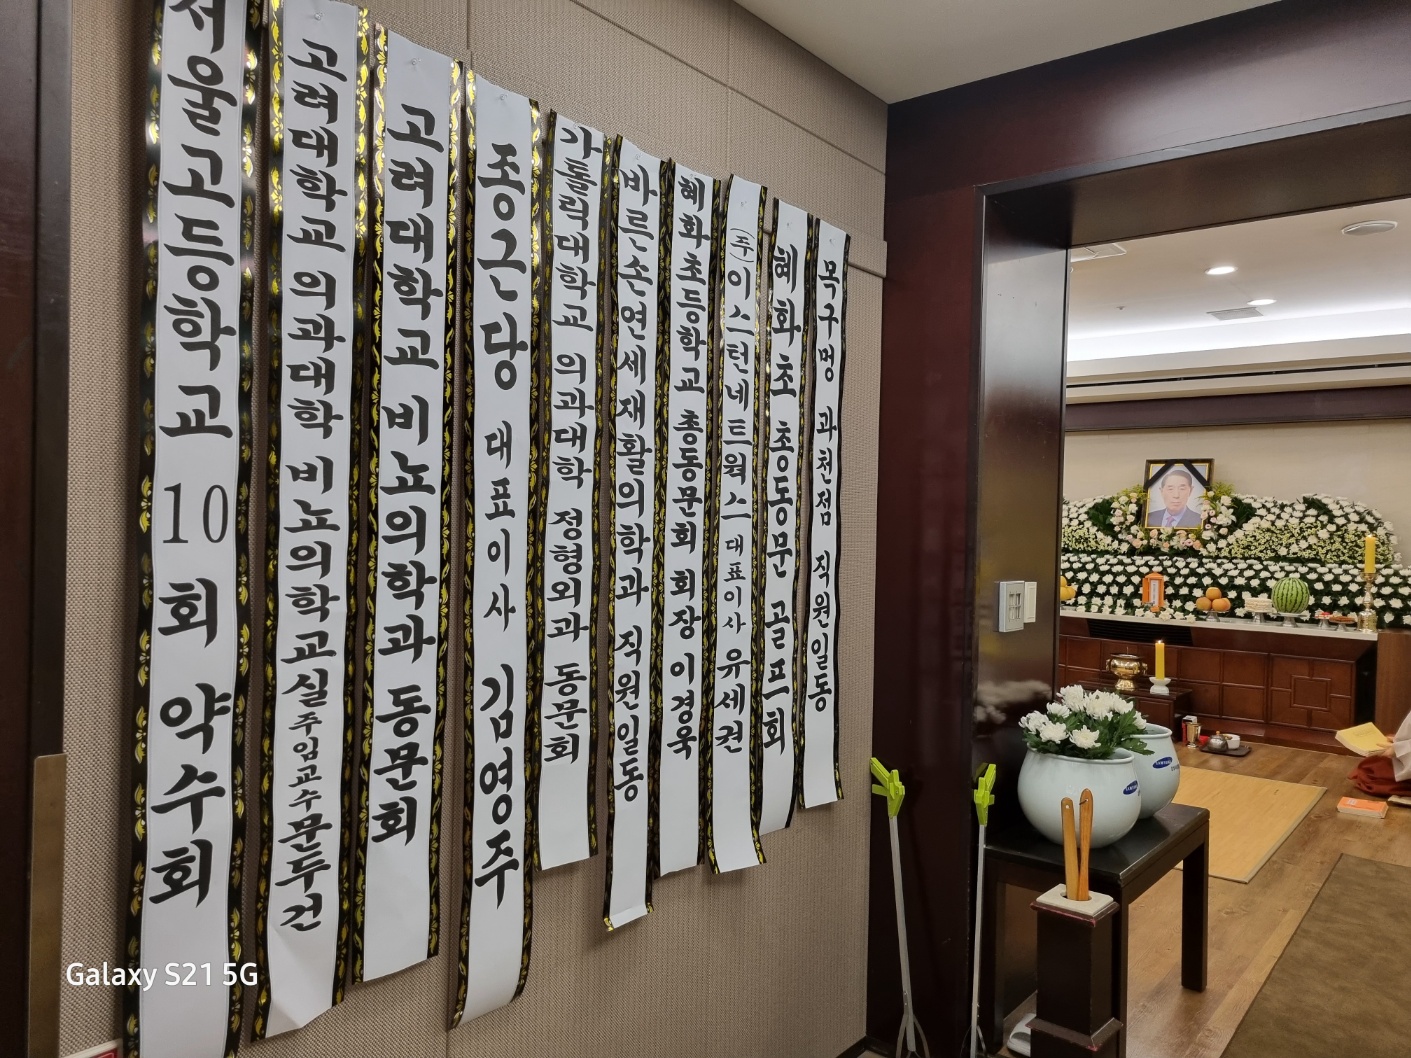 서울고등학교 10회 약수회
고려대학교 의과대학 비뇨의학교실 주임교수 문두건
고려대학교 비뇨의학과 동문회
종근당 대표이사 김영주
가톨릭대학교 의과대학 정형외과 동문회
바른손연세재활의학과 직원일동
혜화초등학교 총동문회 회장 이경욱
(주)이스턴네트웍스 대표이사 유세권
혜화초 총동문 골프회
목구멍 과천점 직원일동
SAMSUNG
SAMSUNG
Galaxy S21 5G